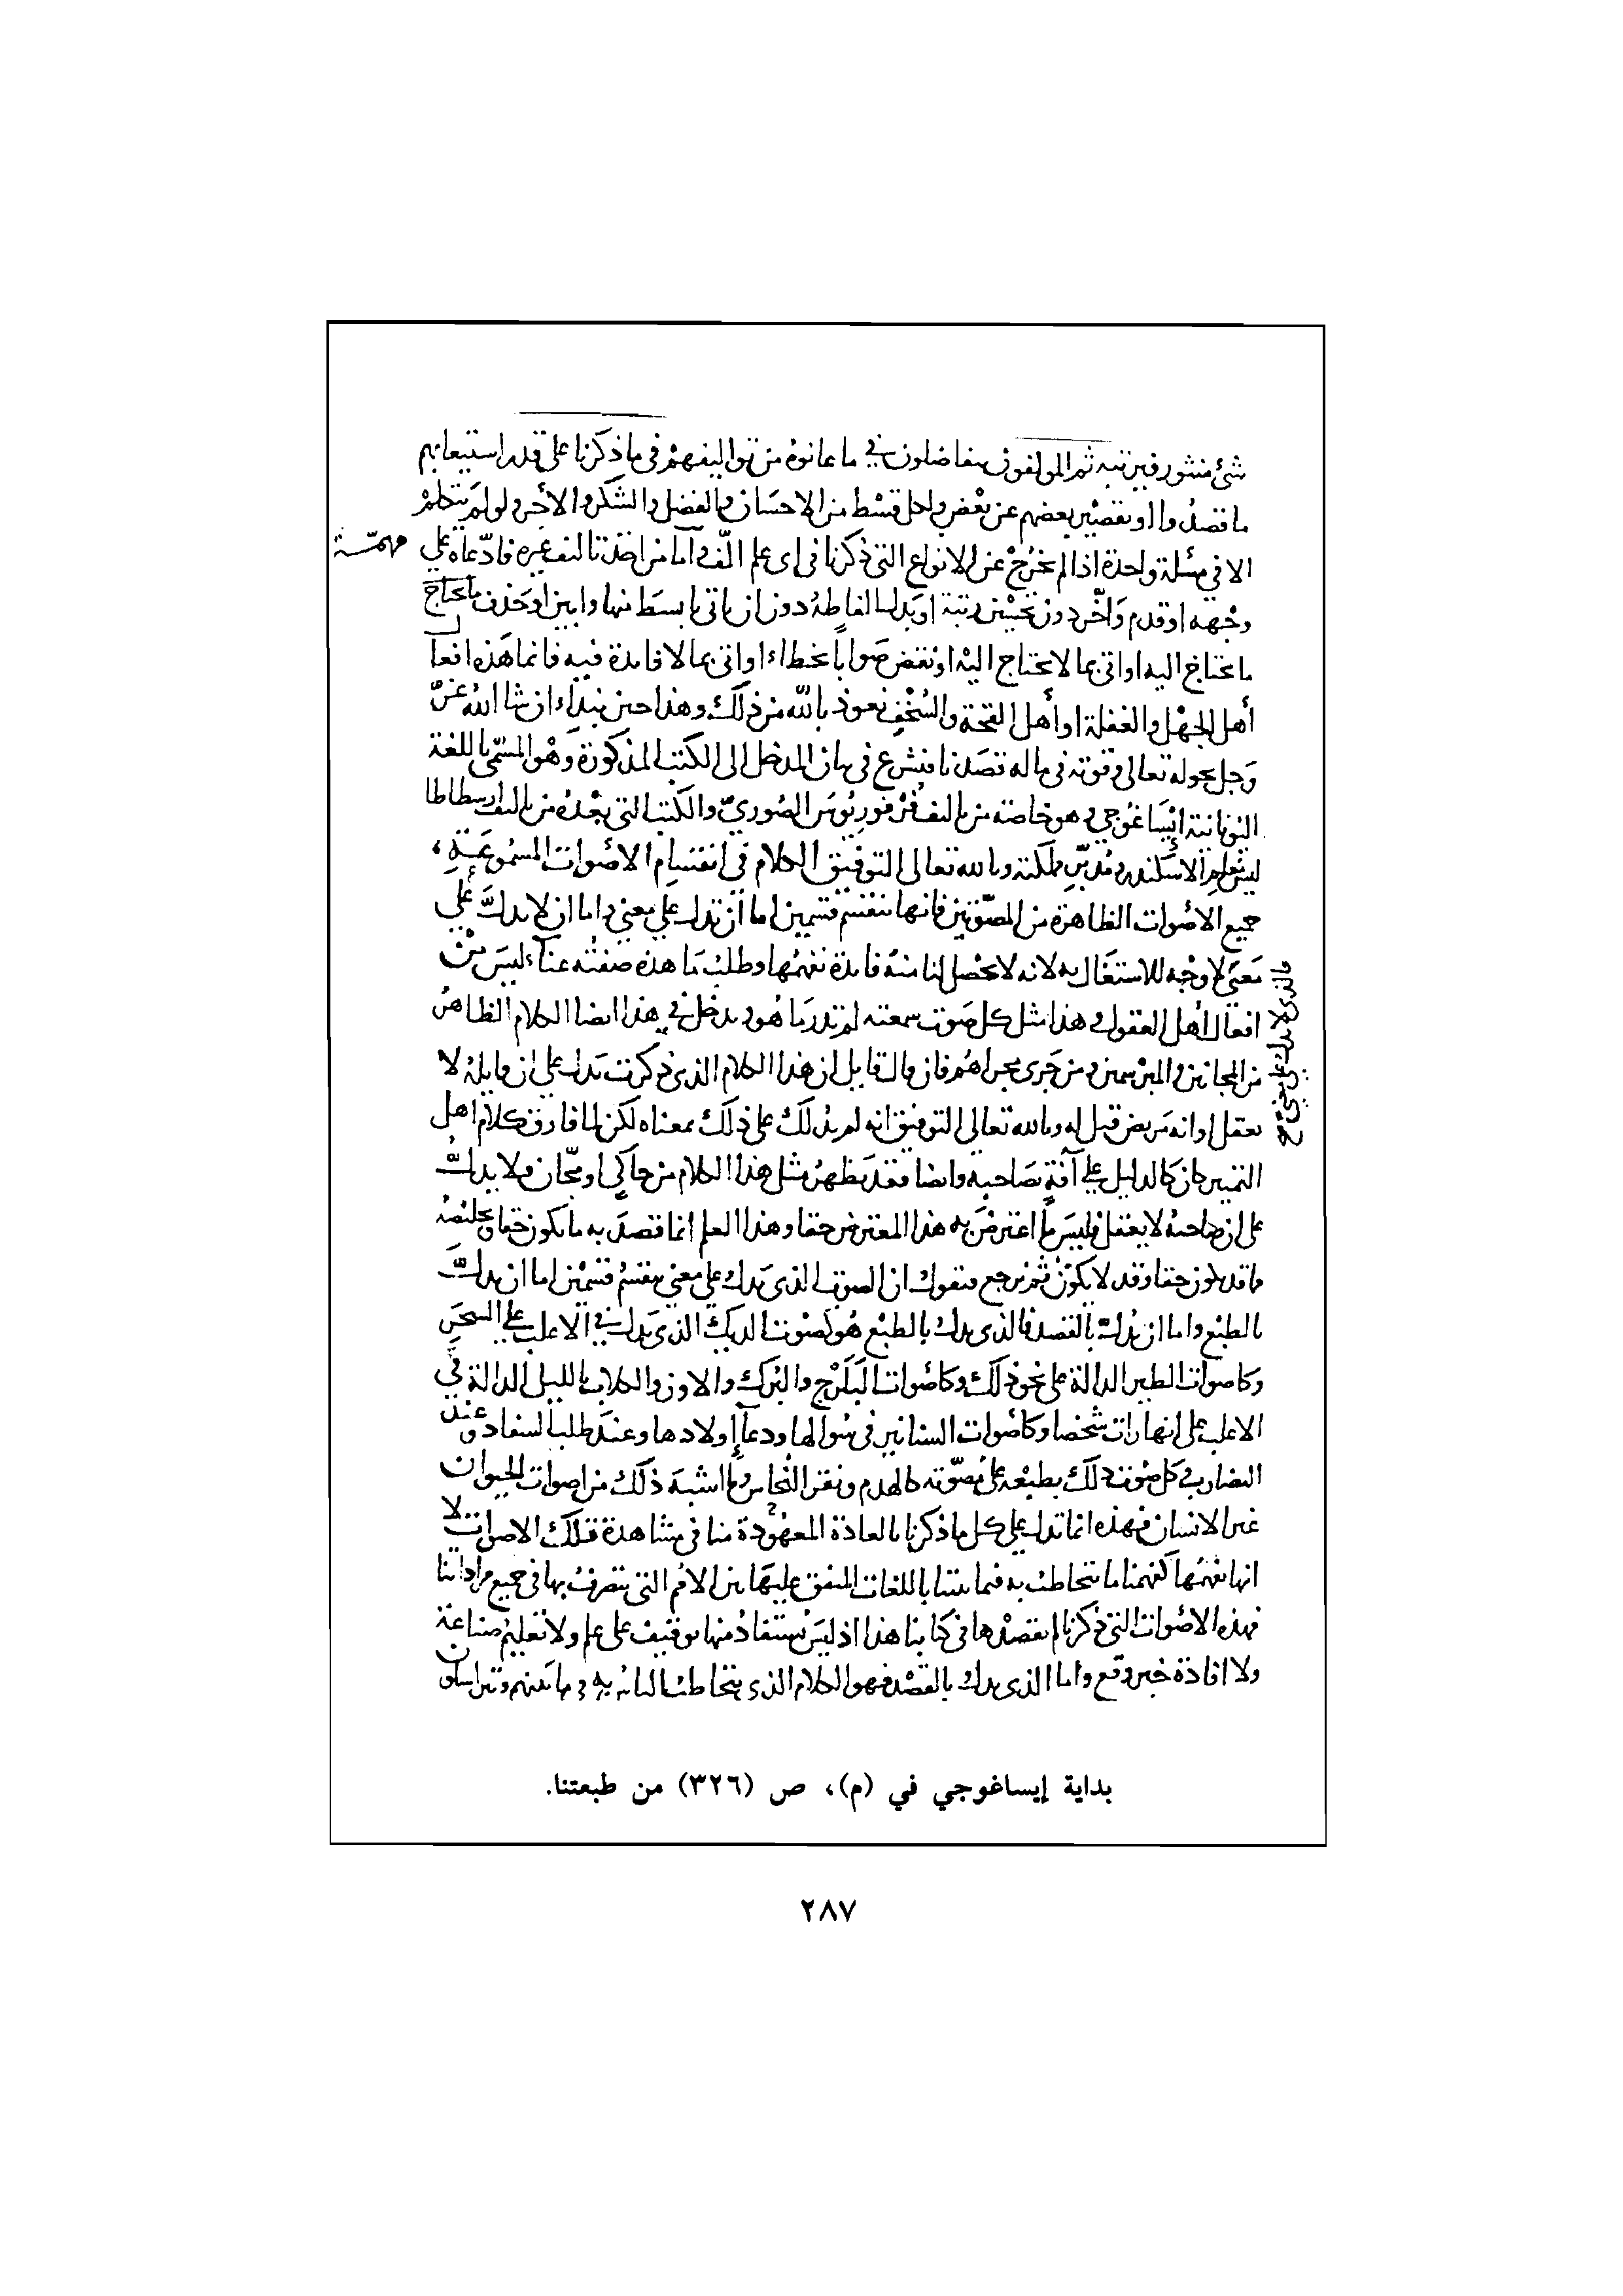 شئ منثور فيرتبه ثم المولفون يتفاضلون في ما عانوه من تواليفهم في ما ذكرنا على قدر استيعابهم
ما قصدوا او تقصير بعضهم عن بعض ولكل قسط من الاحسان والفضل والشكر والاجر ولو لم يتكلم
الا في مسئلة واحدة اذا لم يخرج عن الانواع التي ذكرنا في اي علم الّف واما من اخذ تاليف غيره فادّعاه على
مهمّة
وجهه او قدم وأخّر دون تحسين رتبة او بدل الفاظه دون ان ياتي بابسط منها وابين او حذف مما يحتاج
ما يحتاج اليه او اتى بما لا يحتاج اليه او نقض صوابا بخطاء او اتى بما لا فايدة فيه فانما هذه افعال
أهل الجهل والغفلة او أهل القحة والسُخْف نعوذ بالله من ذلك وهذا حين نبداء ان شا الله عزّ
وجل بحوله تعالى وقوته في ما له قصدنا فنشرع في بيان المدخل الى الكتب المذكورة وهو المسمّى باللغة
اليونانية إيْسَاغُوجي وهو خاصة من تاليف فُرْفُورِيُوسَ الصُوريّ والكتب التي بعده من تاليف ارسطاطا
ليس معلم الاسكندر ومُدبّر مملكته وبالله تعالى التوفيق الكلام في انقسام الاصوات المسموعة
جميع الاصوات الظاهرة من المصّوتين فانها تنقسم قسمين اما أن تدل على معنى واما ان لا تدلّ على
معنى لا وجه للاشتغال به لانه لا يحصل لنا منه فايدة نفهمُها وطلبُ ما هذه صفتُه عناءٌ ليسَ من
والذي لا يدل على معنى صح
افعال أهل العقول وهذا مثل كل صوت سمعته لم تدر ما هو ويدخل في هذا ايضا الكلام الظاهرُ
من المجانين والمبرسمين ومن جَرى مجراهُم فان قال قايل ان هذا الكلام الذي ذكرت يدل على ان قايلهُ لا
يعقل او انه مريض قيل له وبالله تعالى التوفيق انه لم يدلك على ذلك بمعناه لكن لما فارق كلام اهل
التمييز كان كالدليل على آفةٍ بصاحبه وايضا فقد يظهرُ مثل هذا الكلام من حاكي او مجّان فلا يدلُّ
على ان صاحبهُ لا يعقل فليسَ ما اعترضَ به هذا المعترض حقا وهذا العلم انما قصدَ به ما يكون حقا وتخليصهُ
ما قد يكون حقا وقد لا يكون ثم نرجع فنقول ان الصوت الذي يدل على معنى ينقسمُ قسمين اما ان يدلَّ
بالطبع واما ان يدلّ بالقصد فالذي يدل بالطبْع هو كصَوت الديك الذي يدل في الاغلب على السَحَرِ
وكاصوات الطير الدالة على نحو ذلك وكاصوات البَلَرْج والبُرَك والاوز والكلاب بالليل الدالة في
الاغلب على انها رات شخصا وكاصوات السنانير في سوالها ودعاءِ أولادها وعندَ طلب السفاد وعند
التضارب وكل صَوت دلك بطبْعه على مُصَوّته كالهدم ونقر النُحاس وما اشبهَ ذلك من اصوات الحيوان
غير الانسان فهذه انما تدل على كل ما ذكرنا بالعادة المعهودة منا في مشاهدة تلك الاصوات لا
انها نفهمُها كفهمنا ما نتخاطبُ به فيما بيننا باللغات المتفق عليها بين الامم التي نتصرفُ بها في جميع مراداتنا
فهذه الاصوات التي ذكرنا لم نقصدها في كتابنا هذا اذ ليسَ يُستفادُ منها توقيف على علم ولا تعليم صناعة
ولا افادة خبر وقع واما الذي يدل بالقصْد فهو الكلام الذي يتخاطبُ الناسُ به في ما بينهم ويتراسلون
بداية إيساغوجي في (م)، ص (٣٢٦) من طبعتنا.
٢٨٧